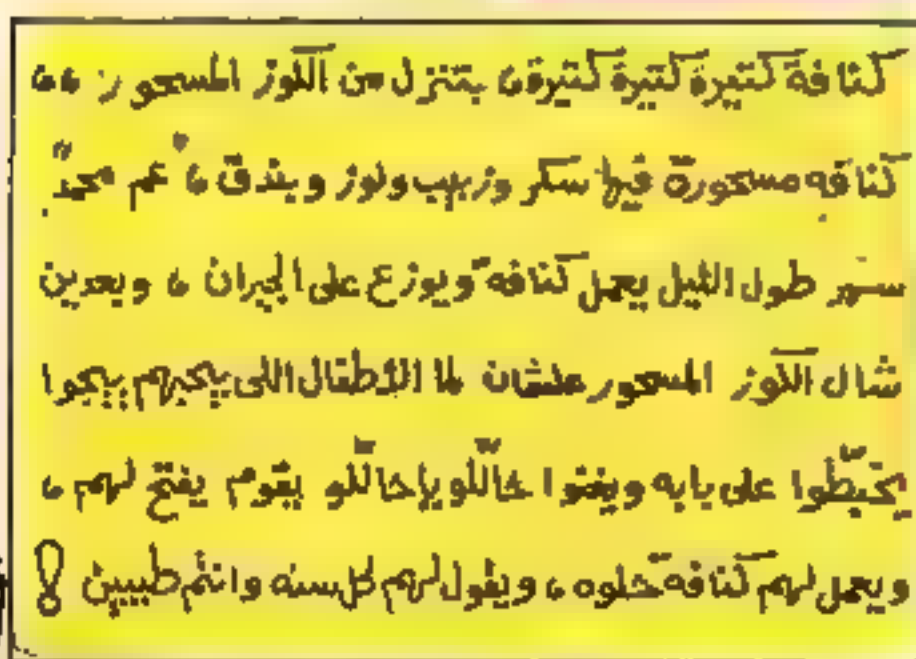 كنافة كتيرة كتيرة كتيرة، بتنزل من الكوز المسحور،،
كنافه مسحورة فيها سكر وزبيب ولوز وبندق، عم محمد
سهر طول الليل يعمل كنافه ويوزع على الجيران، وبعدين
شال الكوز المسحور علشان لما الأطفال اللى بيحبهم ييجوا
يخبطوا على بابه ويغنوا حاللو يا حاللو يقوم يفتح لهم،
ويعمل لهم كنافه حلوه، ويقول لهم كل سنه وانتم طيبين!